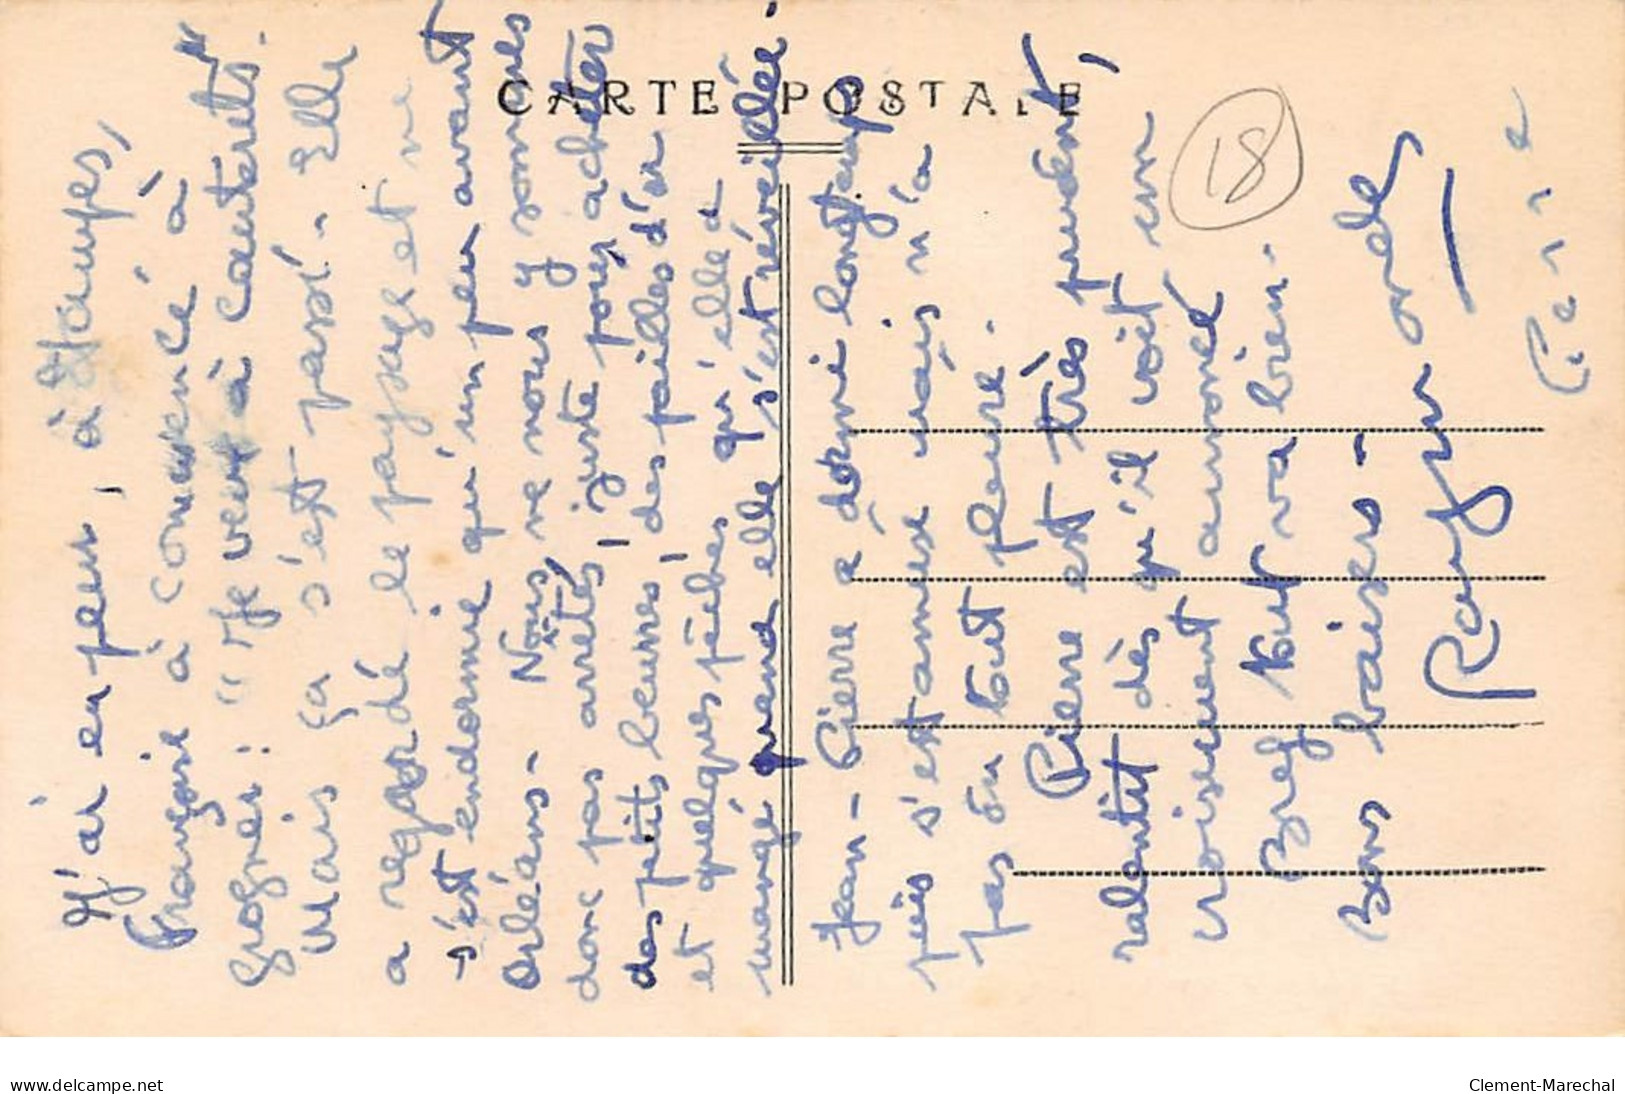 CARTE POSTALE
18
J'ai eu peur, à Etampes,
Françoise à commencé à
grogner : "Je veux à Cauterets".
Mais ça s'est passé. Elle
a regardé le paysage et ne
s'est endormie qu'un peu avant
Orléans - Nous ne nous y sommes
donc pas arretés, juste pour acheter
des petits beurres, des pailles d'or
et quelques pêches qu'elle a
mangé quand elle s'est réveillée.
Jean-Pierre a dormi longtemps
puis s'est amusé mais n'a
pas du tout pleuré.
Pierre est très prudent,
ralentit dès qu'il voit un
croisement annoncé
Bref tout va bien.
Bons baisers -
Raymonde
Pierre
www.delcampe.net
Clement-Marechal